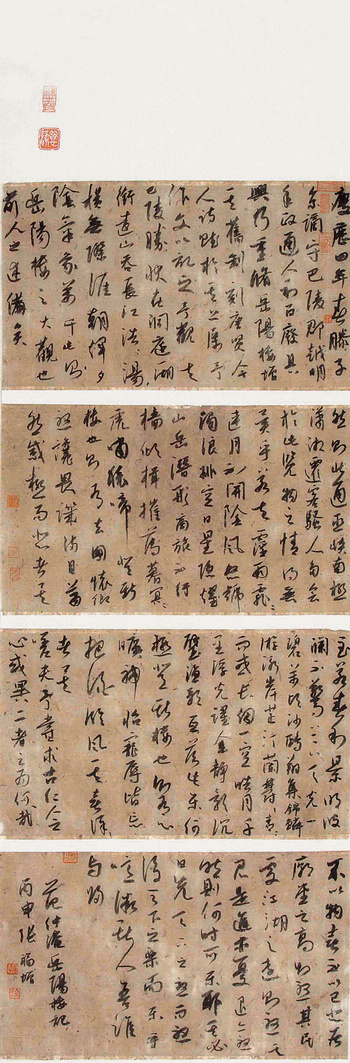 慶曆四年春滕子
京謫守巴陵郡越明
年政通人和百廢具
興乃重脩岳陽樓增
其舊制刻唐賢今
人詩賦於其上屬予
作文以記之予觀夫
巴陵勝狀在洞庭湖
銜遠山吞長江浩浩湯湯
橫無際涯朝暉夕
陰氣象萬千此則
岳陽樓之大觀也
前人之述備矣
然則北通巫峽南極
瀟湘遷客騷人多會
於此覽物之情得無
異乎若夫霪雨霏霏
連月不開陰風怒號
濁浪排空日星隱燿
山岳潛形商旅不行
檣傾楫摧薄暮冥冥
虎嘯猿啼登斯
樓也則有去國懷鄉
憂讒畏譏滿目蕭
然感極而悲者矣
至若春和景明波
瀾不驚上下天光一
碧萬頃沙鷗翔集錦鱗
游泳岸芷汀蘭鬱鬱青青
而或長煙一空皓月千
里浮光躍金靜影沉
璧漁歌互答此樂何
極登斯樓也則有心
曠神怡寵辱皆忘
把酒臨風其喜洋洋
者矣
嗟夫予嘗求古仁人之
心或異二者之為何哉
不以物喜不以己悲居
廟堂之高則憂其民
處江湖之遠則憂其
君是進亦憂退亦憂
然則何時而樂耶其必
曰先天下之憂而憂
後天下之樂而樂乎
噫微斯人吾誰
與歸
范仲淹岳陽樓記
丙申張